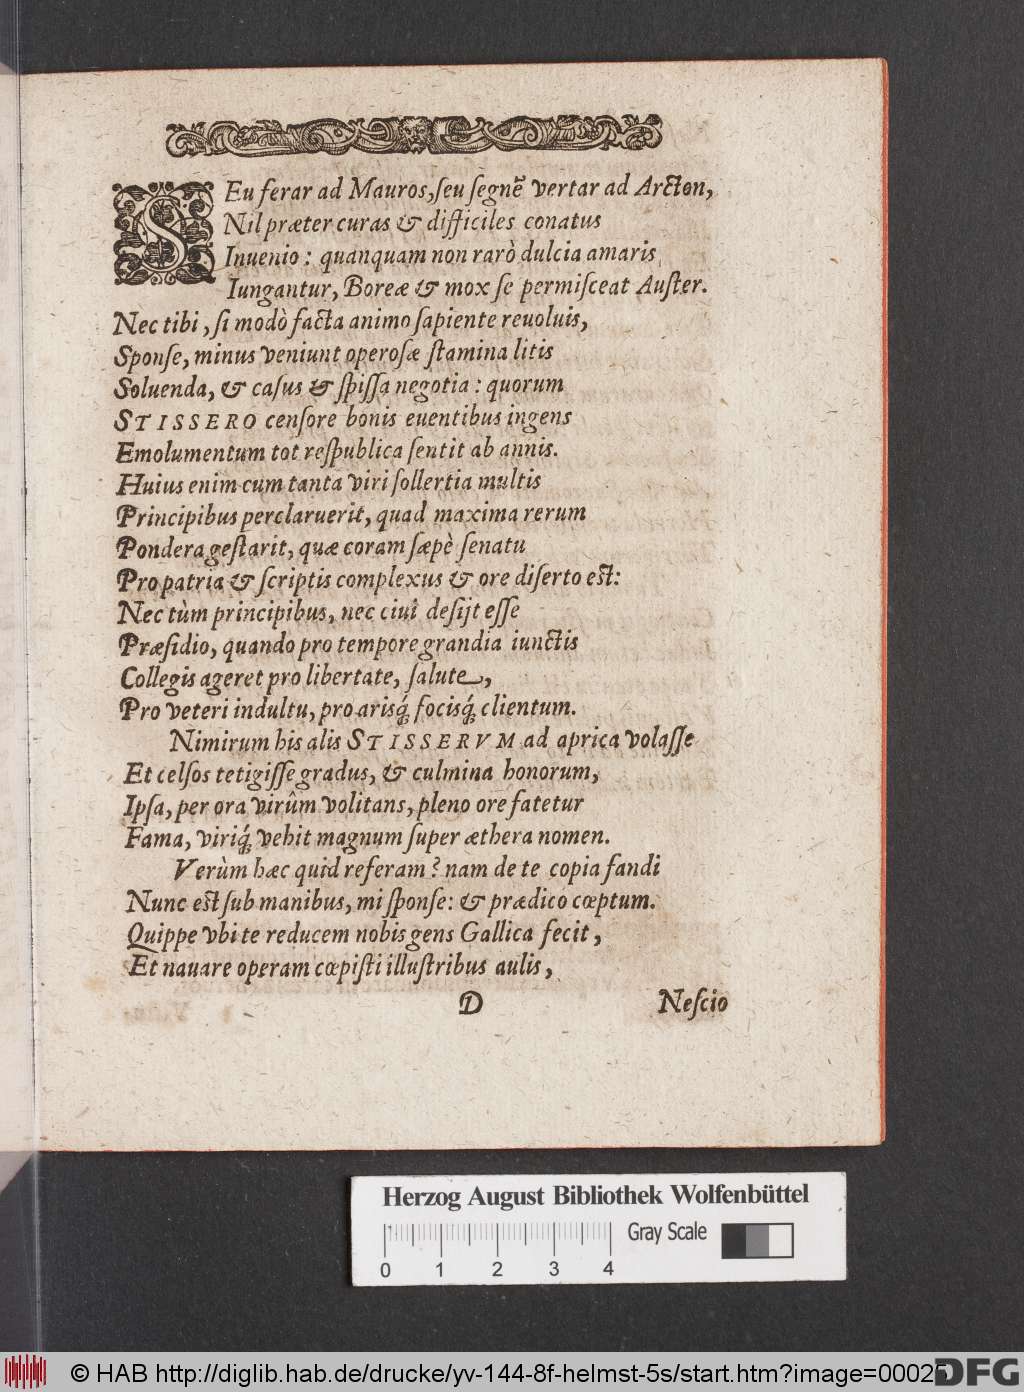 SEu ferar ad Mauros, seu segnẽ vertar ad Arcton,
Nil præter curas & difficiles conatus
Inuenio: quanquam non rarò dulcia amaris
Iungantur, Boreæ & mox se permisceat Auster.
Nec tibi, si modò facta animo sapiente reuoluis,
Sponse, minus veniunt operosæ stamina litis
Soluenda, & casus & spissa negotia: quorum
STISSERO censore bonis euentibus ingens
Emolumentum tot respublica sentit ab annis.
Huius enim cum tanta viri sollertia multis
Principibus perclaruerit, quad maxima rerum
Pondera gestarit, quæ coram sæpè senatu
Pro patria & scriptis complexus & ore diserto est:
Nec tùm principibus, nec ciui desijt esse
Præsidio, quando pro tempore grandia iunctis
Collegis ageret pro libertate, salute,
Pro veteri indultu, pro arisq́; focisq́; clientum.
Nimirum his alis STISSERVM ad aprica volasse
Et celsos tetigisse gradus, & culmina honorum,
Ipsa, per ora virûm volitans, pleno ore fatetur
Fama, viriq́; vehit magnum super æthera nomen.
Verùm hæc quid referam? nam de te copia fandi
Nunc est sub manibus, mi sponse: & prædico cœptum.
Quippe vbi te reducem nobis gens Gallica fecit,
Et nauare operam cœpisti illustribus aulis,
D Nescio
Herzog August Bibliothek Wolfenbüttel
Gray Scale
0 1 2 3 4
© HAB http://diglib.hab.de/drucke/yv-144-8f-helmst-5s/start.htm?image=00025
DFG